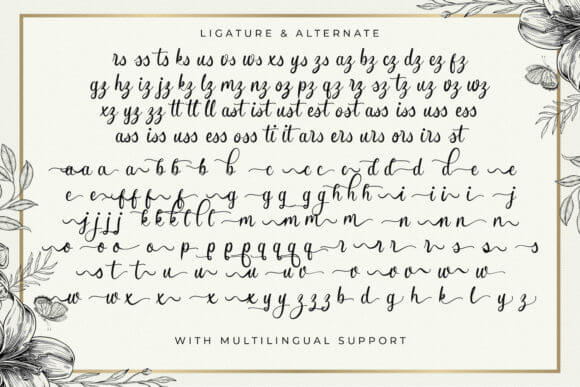 LIGATURE & ALTERNATE
rs ss ts ks us os ws xs ys zs az bz cz dz ez fz
gz hz iz jz kz lz mz nz oz pz qz rz sz tz uz vz wz
xz yz zz tt tl ll ast ist ust est ost ass iss uss ess
ass iss uss ess oss ti it ars ers urs ors irs st
a a a a b b b b c c c c d d d d e e
e e e f f f f g g g g h h h i i i i j
j j j j k k k k l l l m m m m n n n n
o o o o p p p p q q q q r r r r s s s s
s t t u u u u v v v v w w w
w w x x x x x y y z z z b d g h k l y z
WITH MULTILINGUAL SUPPORT